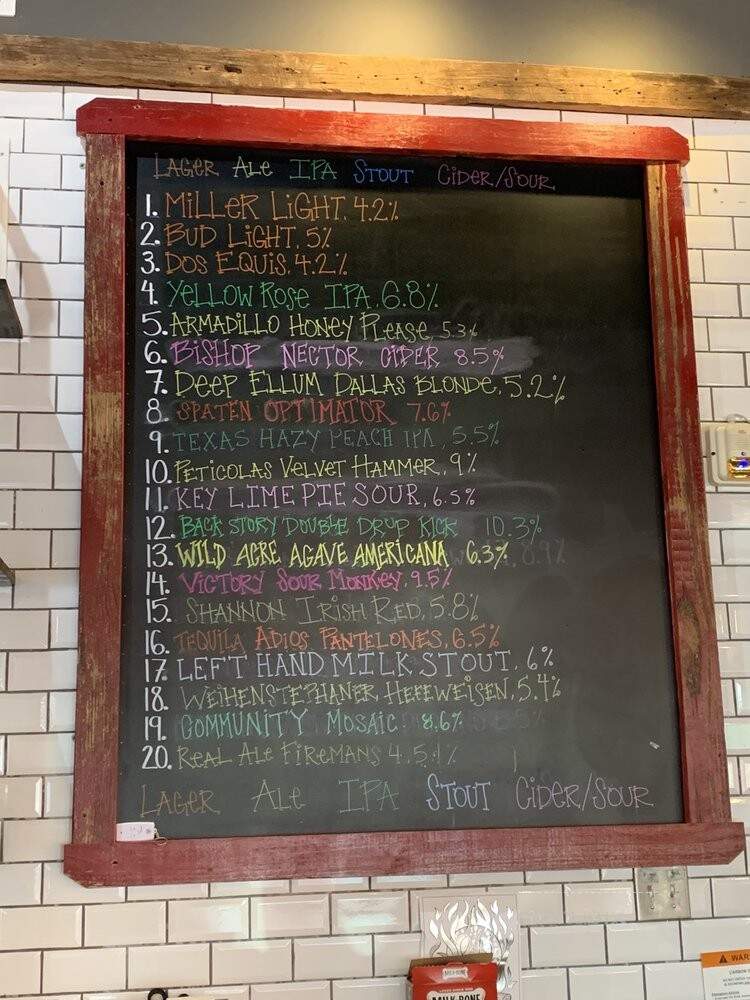 LAGER ALE IPA STOUT CIDER/SOUR
1. MILLER LIGHT. 4.2%
2. BUD LIGHT. 5%
3. DOS EQUIS. 4.2%
4. YELLOW ROSE IPA. 6.8%
5. ARMADILLO HONEY PLEASE, 5.3%
6. BISHOP NECTOR CIDER 8.5%
7. DEEP ELLUM DALLAS BLONDE, 5.2%
8. SPATEN OPTIMATOR 7.6%
9. TEXAS HAZY PEACH IPA, 5.5%
10. PETICOLAS VELVET HAMMER, 9%
11. KEY LIME PIE SOUR, 6.5%
12. BACK STORY DOUBLE DROP KICK 10.3%
13. WILD ACRE AGAVE AMERICANA 6.3%
14. VICTORY SOUR MONKEY. 9.5%
15. SHANNON IRISH RED, 5.8%
16. TEQUILA ADIOS PANTELONES, 6.5%
17. LEFT HAND MILK STOUT, 6%
18. WEIHENSTEPHANER HEFEWEISEN, 5.4%
19. COMMUNITY MOSAIC 8.6%
20. REAL ALE FIREMANS 4. 5.1%
LAGER ALE IPA STOUT CIDER/SOUR
MILK-BONE
WAR